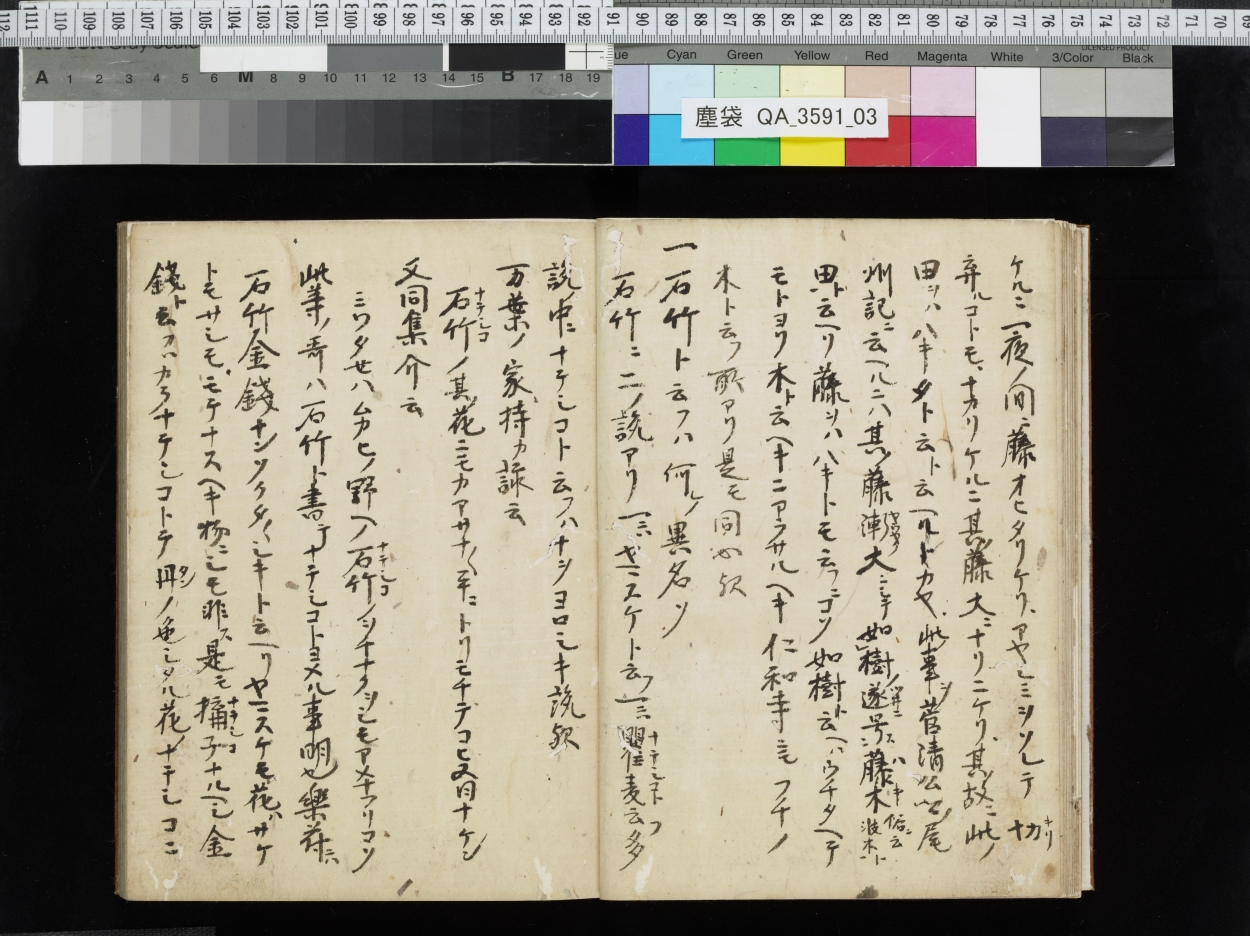 塵袋 QA_3591_03
Cyan Green Yellow Red Magenta White 3/Color Black
LICENSED PRODUCT
A 1 2 3 4 5 6 M 8 9 10 11 12 13 14 15 B 17 18 19
ケルニ一夜ノ間ニ藤オヒタリケリ、アヤシミヲソレテ切
弃ルコトモ、ナカリケルニ其藤大ニナリニケリ、其故ニ此ノ
田ヲハハキタト云ト云ヘルトカヤ、此事ヲ菅清公ノ尾
州記ニ云ヘルニハ其藤漸大ニシテ如樹遂号藤木
田ト云ヘリ藤ヲハハキトモ云フニコソ如樹ト云ヘハウチタヘテ
モトヨリ木ト云ヘキニアラサルヘキ仁和寺ニモフチノ
木ト云フ所アリ是モ同也歟
一石竹ト云フハ何ノ異名ソ
石竹ニ二ノ説アリ一ニハヤマスケト云フ一ニハ瞿麦云多
説中ニナテシコト云フハナヲヨロシキ説歟
万葉ノ家持カ詠云
石竹ノ其花ニモカアサナ〱手ニトリモチテコヒヌ日ナケン
又同集介云
ミワタセハムカヒノ野ヘノ石竹ノ
此等ノ哥ハ石竹ト書テナテシコトヨメル事明也樂府ニハ
石竹金錢ナンツクタ〱シキト云ヘリヤマスケモ花ハサケ
トモサシモ、モテナスヘキ物ニシモ非ス是モ ナルヘシ金
錢ト云フハカラナテシコトテ丹ノ色シタル花ノナテシコニ